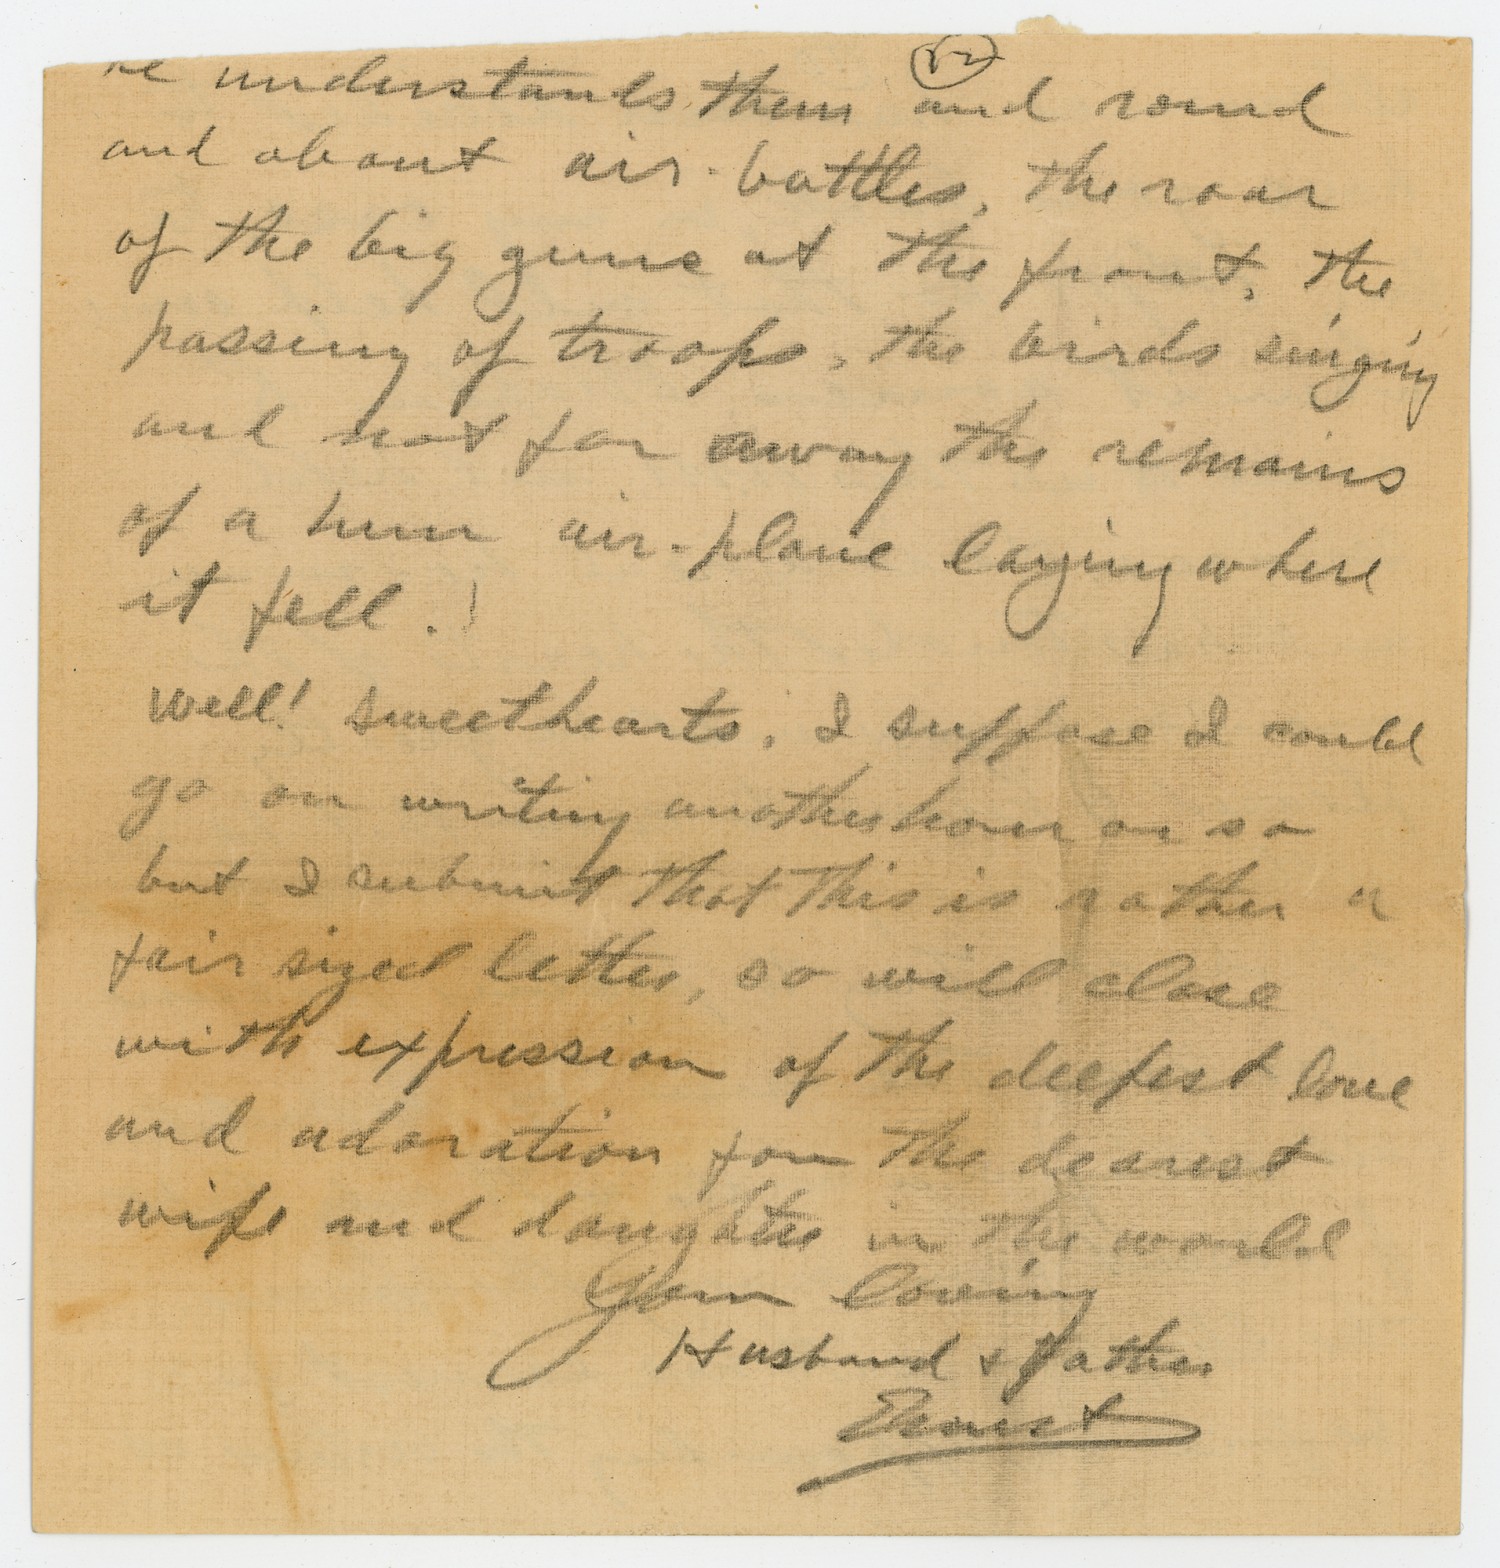 he understands them and round
and about air-battles, the roar
of the big guns at the front, the
passing of troops, the birds singing
and not far away the remains
of a hun air-plane laying where
it fell.!
Well! sweethearts, I suppose I could
go on writing another hour or so
but I submit that this is rather a
fair sized letter, so will close
with expression of the deepest love
and adoration for the dearest
wife and daughter in the world
Your loving
Husband & father
Ernest